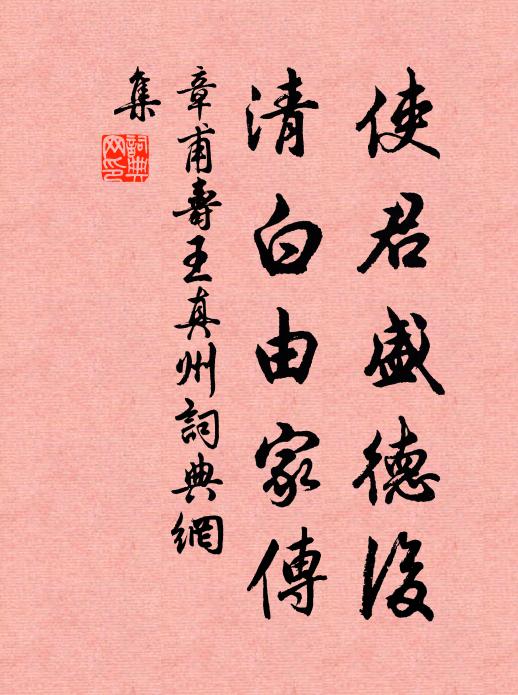 使君盛德後
清白由家傳
章甫壽王真州詞典網
集
詞典網印